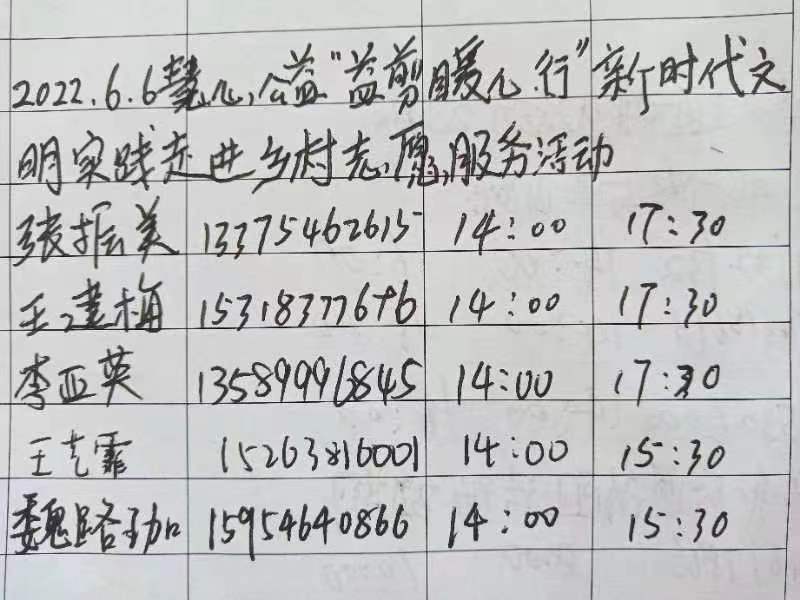 2022.6.6慧心公益"益剪暖心行"新时代文
明实践走进乡村志愿服务活动
张振美 13375462615 14:00 17:30
王建梅 15318377676 14:00 17:30
李亚英 13589996845 14:00 17:30
王艺霏 15263816001 14:00 15:30
魏路加 15954640866 14:00 15:30